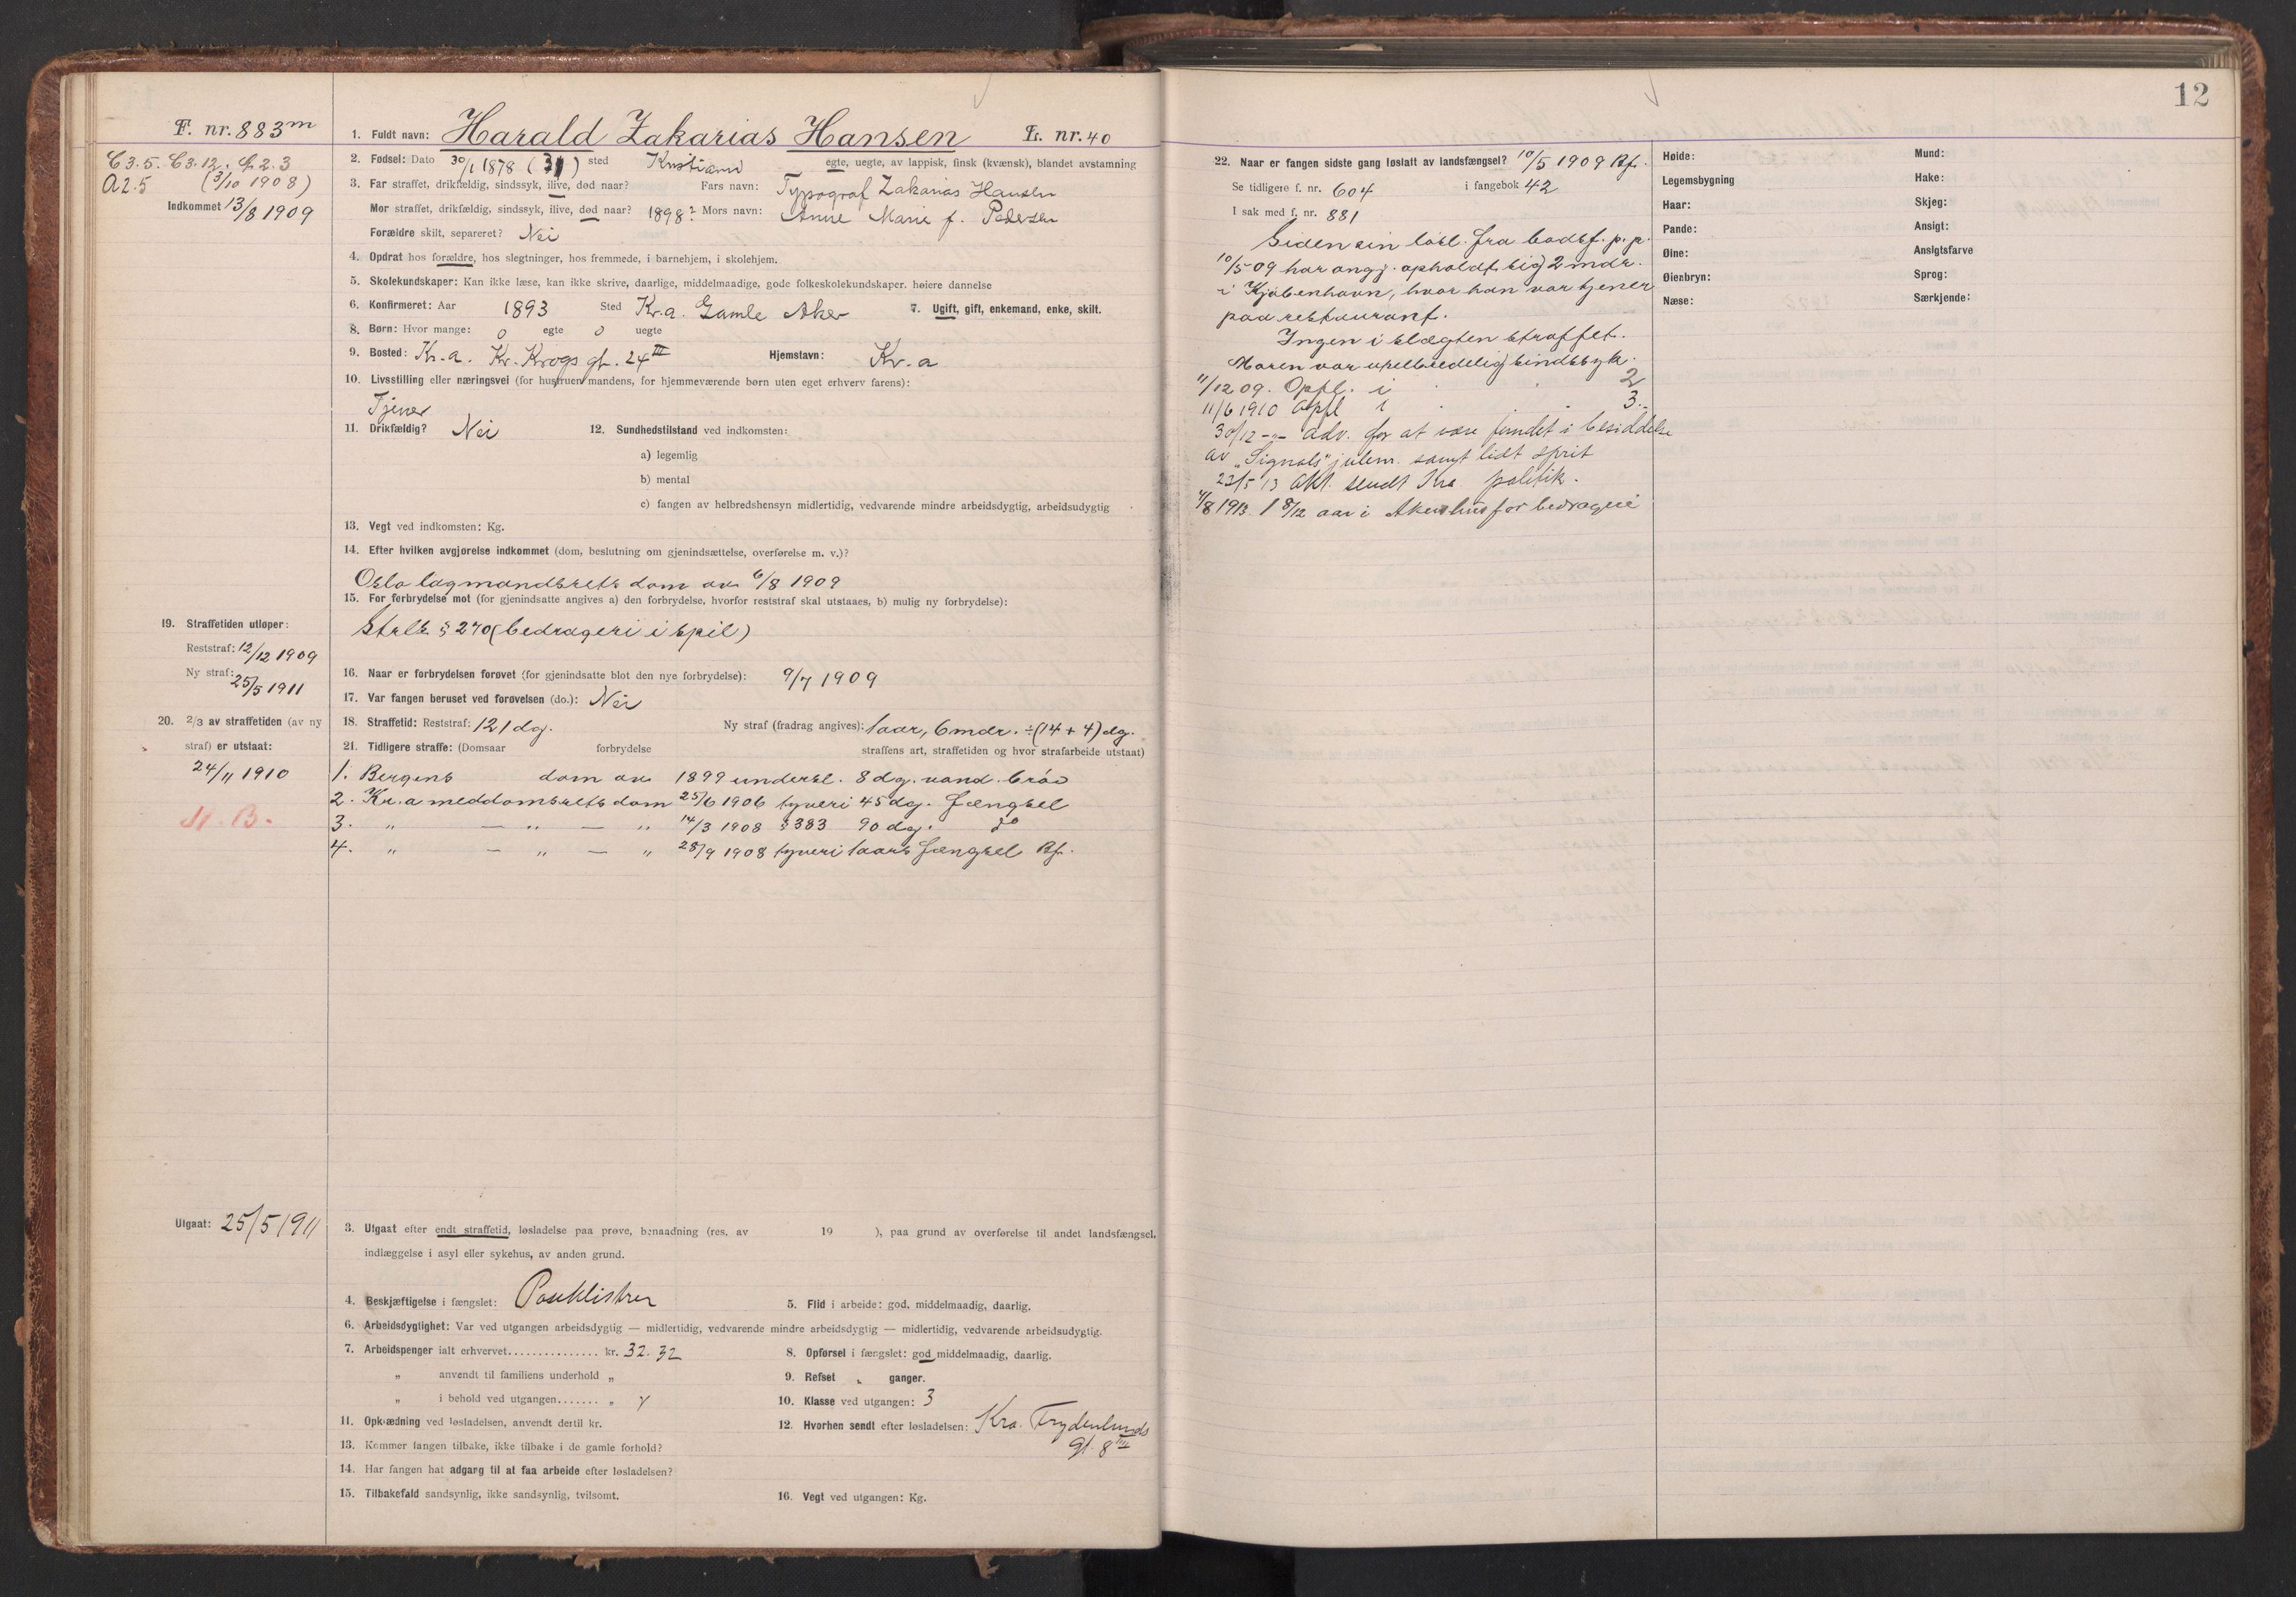 F. nr. 883 m
C 3.5. C 3.12. 2.3
A 2.5 (3/10 1908)
Indkommet 13/8 1909
1. Fuldt navn: Harald Zakarias Hansen L. nr. 40
2. Fødsel: Dato 30/1 1878 (31) sted Kristiania egte, uegte, av lappisk, finsk (kvænsk), blandet avstamning
3. Far straffet, drikfældig, sindssyk, ilive, død naar? Fars navn: Typograf Zakarias Hansen
Mor straffet, drikfældig, sindssyk, ilive, død naar? 1898? Mors navn: Anne Marie f. Pedersen
Forældre skilt, separeret? Nei
4. Opdrat hos forældre, hos slegtninger, hos fremmede, i barnehjem, i skolehjem.
5. Skolekundskaper: Kan ikke læse, kan ikke skrive, daarlige, middelmaadige, gode folkeskolekundskaper. høiere dannelse
6. Konfirmeret: Aar 1893 Sted Kr.a. Gamle Aker 7. Ugift, gift, enkemand, enke, skilt.
8. Børn: Hvor mange: 0 egte 0 uegte
9. Bosted: Kr.a. Kr. Krogs gt. 24 III Hjemstavn: Kr.a
10. Livsstilling eller næringsvei (for hustruen mandens, for hjemmeværende børn uten eget erhverv farens):
Tjener
11. Drikfældig? Nei 12. Sundhedstilstand ved indkomsten:
a) legemlig
b) mental
c) fangen av helbredshensyn midlertidig, vedvarende mindre arbeidsdygtig, arbeidsudygtig
13. Vegt ved indkomsten: Kg.
14. Efter hvilken avgjørelse indkommet (dom, beslutning om gjenindsættelse, overførelse m. v.)?
Oslo lagmandsrets dom av 6/8 1909
15. For forbrydelse mot (for gjenindsatte angives a) den forbrydelse, hvorfor reststraf skal utstaaes, b) mulig ny forbrydelse):
Strlk. § 270 (bedrageri i spil)
19. Straffetiden utløper:
Reststraf: 12/12 1909
Ny straf: 25/5 1911
16. Naar er forbrydelsen forøvet (for gjenindsatte blot den nye forbrydelse): 9/7 1909
17. Var fangen beruset ved forøvelsen (do.): Nei
20. 2/3 av straffetiden (av ny
straf) er utstaat:
24/11 1910
18. Straffetid: Reststraf: 121 dg. Ny straf (fradrag angives): 1 aar, 6 mdr. ÷ (14 + 4) dg.
21. Tidligere straffe: (Domsaar forbrydelse straffens art, straffetiden og hvor strafarbeide utstaat)
1. Bergens dom av 1899 undersl. 8 dg. vand. brød
2. Kr.a meddomsrets dom 25/6 1906 tyveri 45 dg. fængsel
3. " — " — " 14/3 1908 § 383 90 dg. do
4. " — " — " 28/9 1908 tyveri 1 aars fængsel Bf.
Utgaat: 25/5 1911
3. Utgaat efter endt straffetid, løsladelse paa prøve, benaadning (res. av 19 ), paa grund av overførelse til andet landsfængsel,
indlæggelse i asyl eller sykehus, av anden grund.
4. Beskjæftigelse i fængslet: Poseklistrer 5. Flid i arbeide: god, middelmaadig, daarlig.
6. Arbeidsdyglighet: Var ved utgangen arbeidsdygtig — midlertidig, vedvarende mindre arbeidsdygtig — midlertidig, vedvarende arbeidsudygtig.
7. Arbeidspenger ialt erhvervet............... kr. 32.32 8. Opførsel i fængslet: god middelmaadig, daarlig.
" anvendt til familiens underhold " 9. Refset " ganger.
" i behold ved utgangen....... " 10. Klasse ved utgangen: 3
11. Opklædning ved løsladelsen, anvendt dertil kr. 12. Hvorhen sendt efter løsladelsen: Kra. Frydenlunds
gt. 8 III
13. Kommer fangen tilbake, ikke tilbake i de gamle forhold?
14. Har fangen hat adgang til at faa arbeide efter løsladelsen?
15. Tilbakefald sandsynlig, ikke sandsynlig, tvilsomt. 16. Vegt ved utgangen: Kg.
12
22. Naar er fangen sidste gang løslatt av landsfængsel? 10/5 1909 Bf.
Se tidligere f. nr. 604 i fangebok 42
I sak med f. nr. 881
Siden sin løsl. fra bodsf. p. p.
10/5 09 har angj. opholdt sig 2 mdr.
i Kjøbenhavn, hvor han var tjener
paa restaurant.
Ingen i slægten straffet.
Moren var uhelbredelig sindssyk.
11/12 09. Oppl. i 2
11/6 1910 Oppl i 3.
30/12 -"- adv. for at være fundet i besiddelse
av "Signals" julenr. samt lidt sprit
23/5 13 Akt. sendt Kra politik.
4/8 1913. 1 8/12 aar i Akershus for bedrageri
Høide:
Legemsbygning
Haar:
Pande:
Øine:
Øienbryn:
Næse:
Mund:
Hake:
Skjeg:
Ansigt:
Ansigtsfarve
Sprog:
Særkjende: